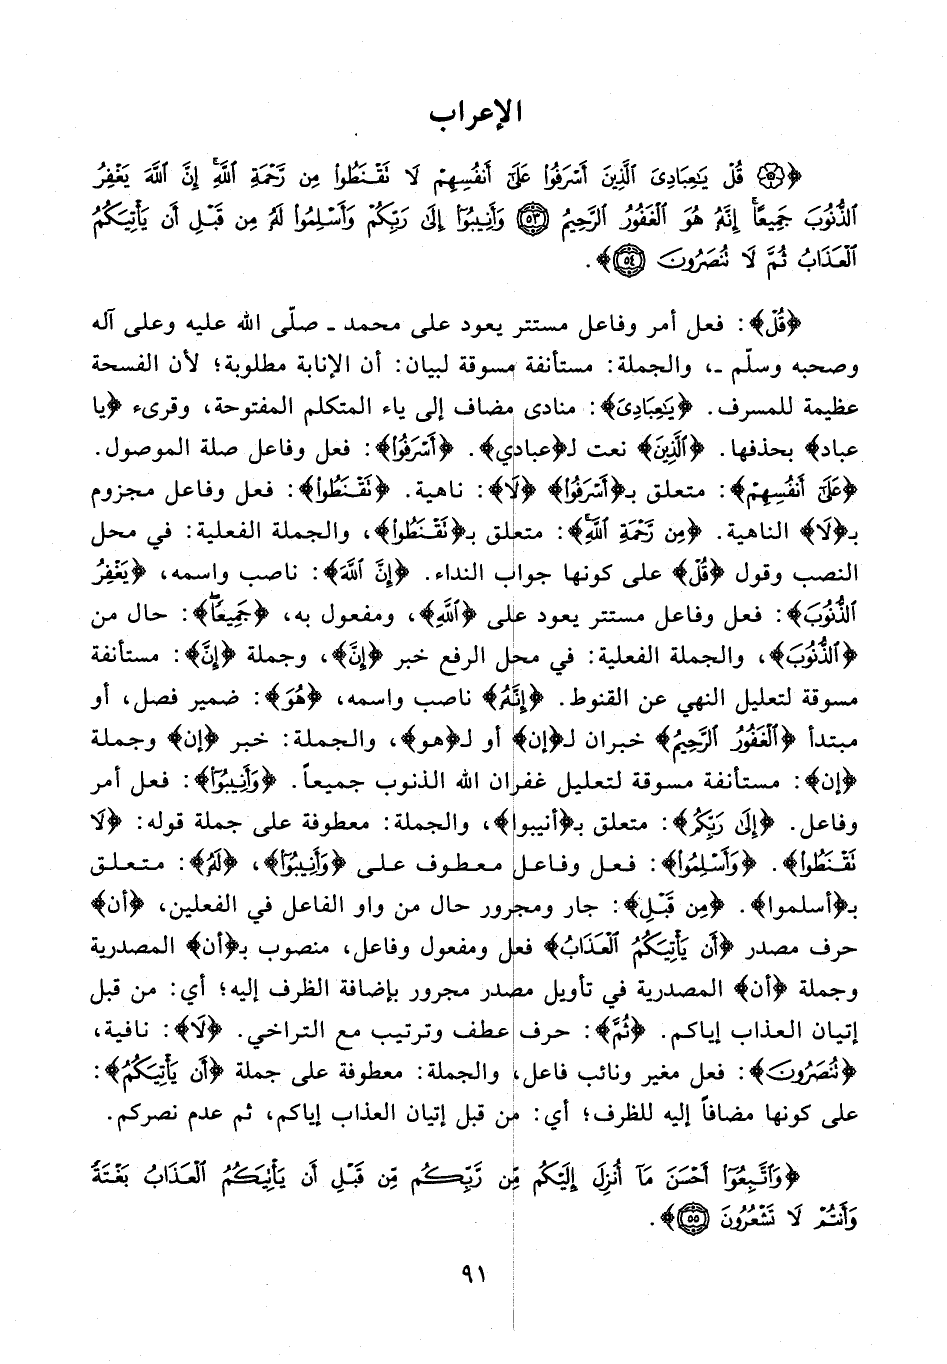 الإعراب
﴿۞ قُلْ يَٰعِبَادِىَ ٱلَّذِينَ أَسْرَفُوا۟ عَلَىٰٓ أَنفُسِهِمْ لَا نَقْنَطُوا۟ مِن رَّحْمَةِ ٱللَّهِۚ إِنَّ ٱللَّهَ يَغْفِرُ
ٱلذُّنُوبَ جَمِيعًاۚ إِنَّهُۥ هُوَ ٱلْغَفُورُ ٱلرَّحِيمُ ۝٥٣ وَأَنِيبُوٓا۟ إِلَىٰ رَبِّكُمْ وَأَسْلِمُوا۟ لَهُۥ مِن قَبْلِ أَن يَأْتِيَكُمُ
ٱلْعَذَابُ ثُمَّ لَا نُنصَرُونَ ۝٥٤﴾.
﴿قُلْ﴾: فعل أمر وفاعل مستتر يعود على محمد ـ صلّى الله عليه وعلى آله
وصحبه وسلّم ـ، والجملة: مستأنفة مسوقة لبيان: أن الإنابة مطلوبة؛ لأن الفسحة
عظيمة للمسرف. ﴿يَٰعِبَادِىَ﴾: منادى مضاف إلى ياء المتكلم المفتوحة، وقرىء ﴿يا
عباد﴾ بحذفها. ﴿ٱلَّذِينَ﴾ نعت لـ﴿عبادي﴾. ﴿أَسْرَفُوا۟﴾: فعل وفاعل صلة الموصول.
﴿عَلَىٰٓ أَنفُسِهِمْ﴾: متعلق بـ﴿أَسْرَفُوا۟﴾ ﴿لَا﴾: ناهية. ﴿نَقْنَطُوا۟﴾: فعل وفاعل مجزوم
بـ﴿لَا﴾ الناهية. ﴿مِن رَّحْمَةِ ٱللَّهِۚ﴾: متعلق بـ﴿نَقْنَطُوا۟﴾، والجملة الفعلية: في محل
النصب وقول ﴿قُلْ﴾ على كونها جواب النداء. ﴿إِنَّ ٱللَّهَ﴾: ناصب واسمه، ﴿يَغْفِرُ
ٱلذُّنُوبَ﴾: فعل وفاعل مستتر يعود على ﴿ٱللَّهِ﴾، ومفعول به، ﴿جَمِيعًاۚ﴾: حال من
﴿ٱلذُّنُوبَ﴾، والجملة الفعلية: في محل الرفع خبر ﴿إِنَّ﴾، وجملة ﴿إِنَّ﴾: مستأنفة
مسوقة لتعليل النهي عن القنوط. ﴿إِنَّهُۥ﴾ ناصب واسمه، ﴿هُوَ﴾: ضمير فصل، أو
مبتدأ ﴿ٱلْغَفُورُ ٱلرَّحِيمُ﴾ خبران لـ﴿إن﴾ أو لـ﴿هو﴾، والجملة: خبر ﴿إن﴾ وجملة
﴿إن﴾: مستأنفة مسوقة لتعليل غفران الله الذنوب جميعاً. ﴿وَأَنِيبُوٓا۟﴾: فعل أمر
وفاعل. ﴿إِلَىٰ رَبِّكُمْ﴾: متعلق بـ﴿أنيبوا﴾، والجملة: معطوفة على جملة قوله: ﴿لَا
نَقْنَطُوا۟﴾. ﴿وَأَسْلِمُوا۟﴾: فعل وفاعل معطوف على ﴿وَأَنِيبُوٓا۟﴾، ﴿لَهُۥ﴾: متعلق
بـ﴿أسلموا﴾. ﴿مِن قَبْلِ﴾: جار ومجرور حال من واو الفاعل في الفعلين، ﴿أن﴾
حرف مصدر ﴿أَن يَأْتِيَكُمُ ٱلْعَذَابُ﴾ فعل ومفعول وفاعل، منصوب بـ﴿أن﴾ المصدرية
وجملة ﴿أن﴾ المصدرية في تأويل مصدر مجرور بإضافة الظرف إليه؛ أي: من قبل
إتيان العذاب إياكم. ﴿ثُمَّ﴾: حرف عطف وترتيب مع التراخي. ﴿لَا﴾: نافية،
﴿نُنصَرُونَ﴾: فعل مغير ونائب فاعل، والجملة: معطوفة على جملة ﴿أَن يَأْتِيَكُمُ﴾:
على كونها مضافاً إليه للظرف؛ أي: من قبل إتيان العذاب إياكم، ثم عدم نصركم.
﴿وَٱتَّبِعُوٓا۟ أَحْسَنَ مَآ أُنزِلَ إِلَيْكُم مِّن رَّبِّكُم مِّن قَبْلِ أَن يَأْتِيَكُمُ ٱلْعَذَابُ بَغْتَةً
وَأَنتُمْ لَا تَشْعُرُونَ ۝٥٥﴾.
٩١